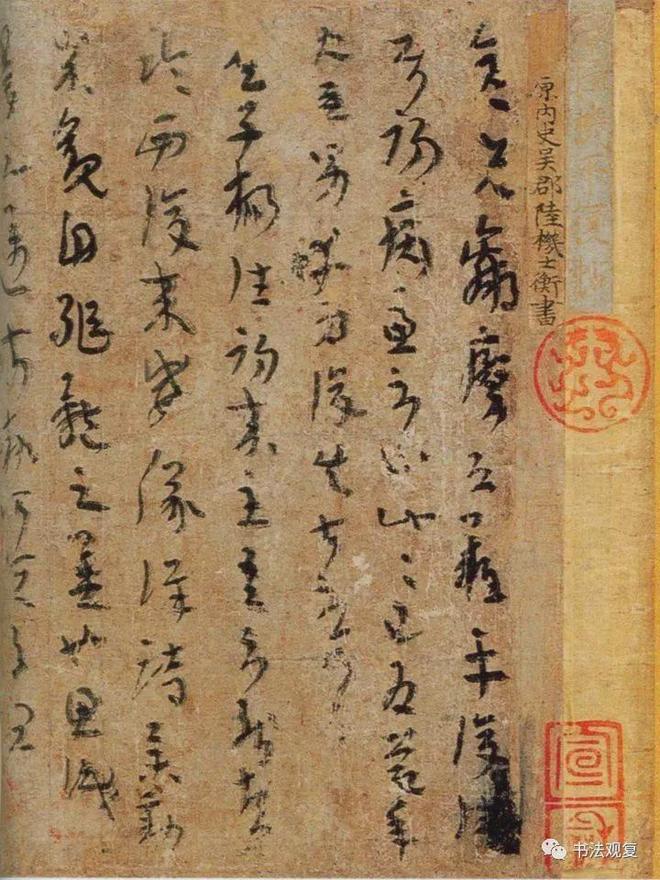 平復帖
原內史吳郡陸機士衡書
彦先羸瘵恐難平復往屬
初病慮不止此此已為慶承
使唯男幸為復失前憂耳
吳子楊往初來主吾不能盡
臨西復來威儀詳跱舉動
成觀自軀體之美也思識
宣和
书法观复